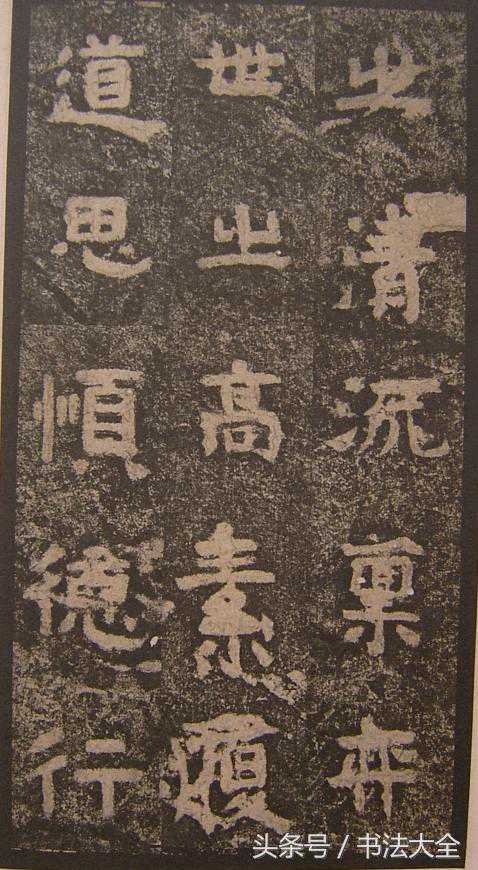 清流禀弈
世之高素履
道思順德行
头条号 / 书法大全